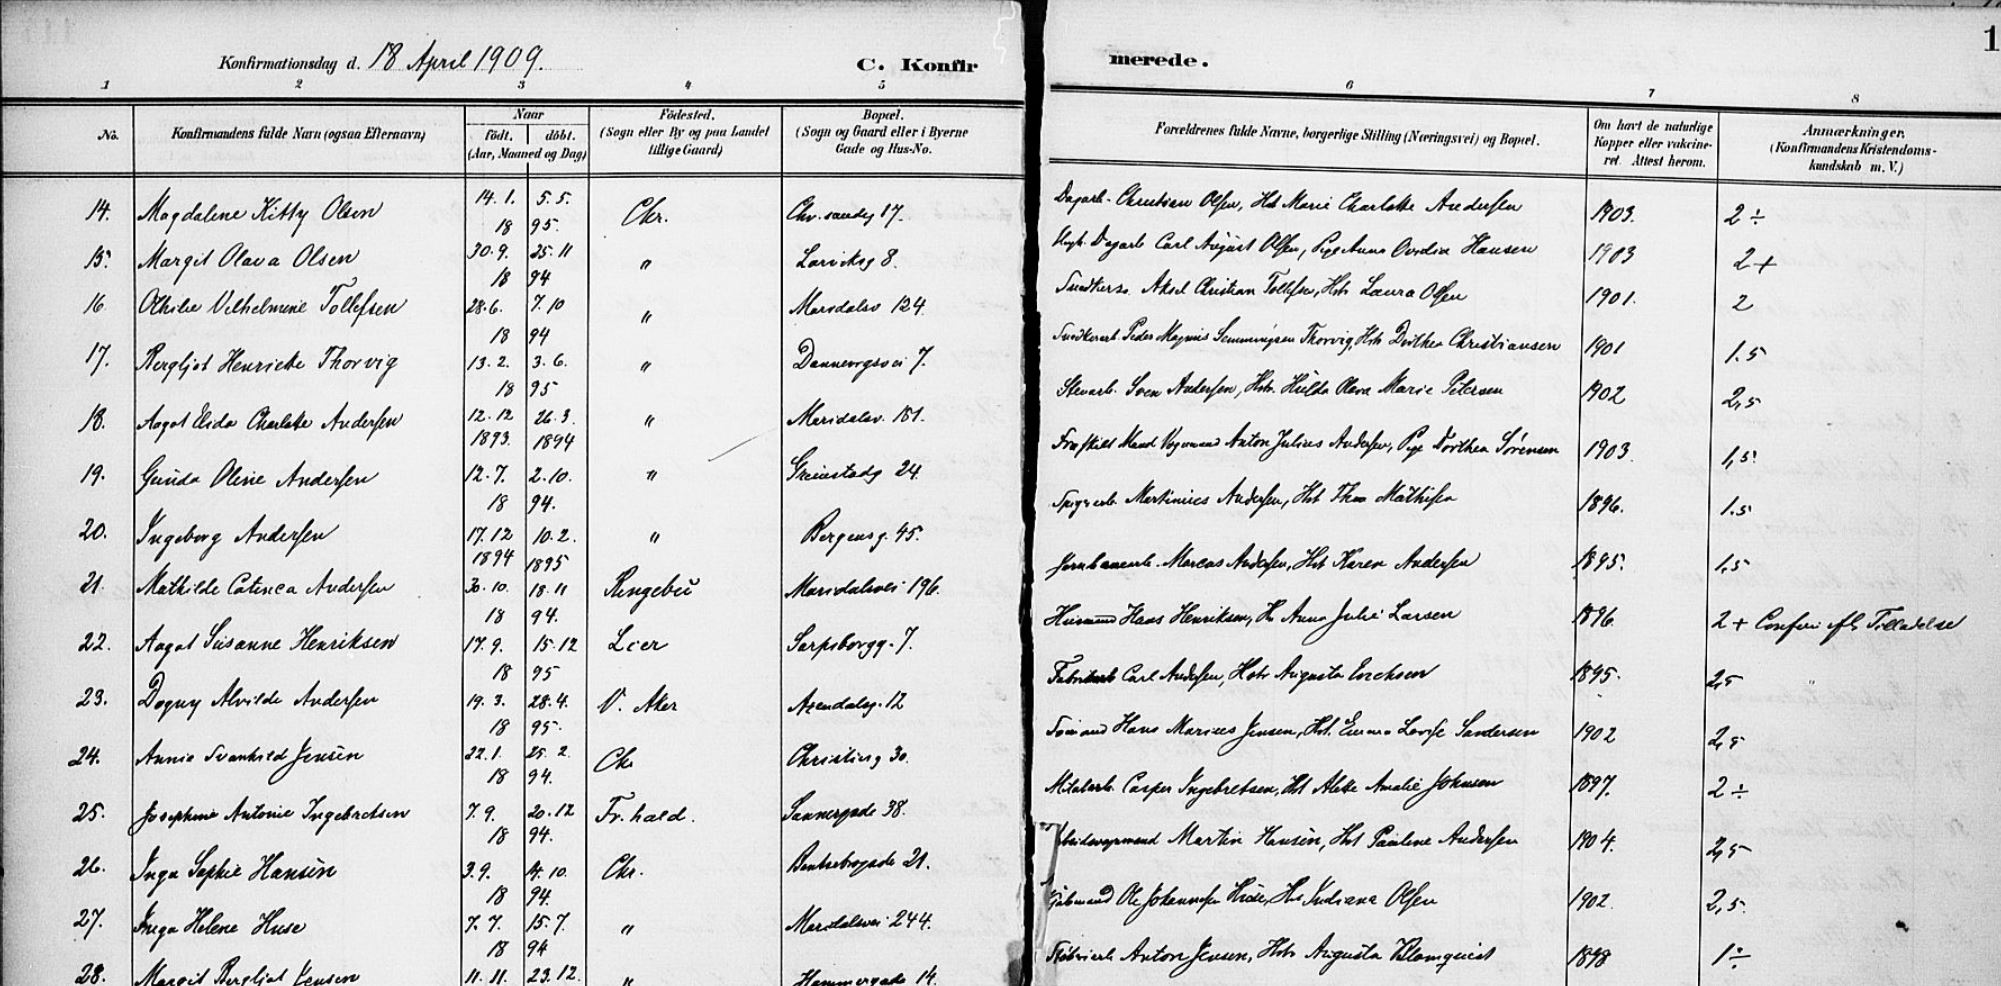 1
Konfirmationsdag d. 18 April 1909.
C. Konfirmerede.
1 2 3 4 5 6 7 8
No.
Konfirmandens fulde Navn (ogsaa Efternavn)
Naar
født. døbt.
(Aar, Maaned og Dag)
Fødested.
(Sogn eller By og paa Landet
tillige Gaard)
Bopæl.
(Sogn og Gaard eller i Byerne
Gade og Hus-No.
Forældrenes fulde Navne, borgerlige Stilling (Næringsvei) og Bopæl.
Om havt de naturlige
Kopper eller vakcine-
ret. Attest herom.
Anmærkninger.
(Konfirmandens Kristendoms-
kundskab m. V.)
14. Magdalene Kitty Olsen 14.1. 5.5. Chr. Chr.sandsg 17. Dagarb. Christian Olsen, Hst Marie Charlotte Andersen 1903. 2 ÷
18 95.
15. Margit Olava Olsen 30.9. 25.11 " Larviksg 8. Dagarb Carl August Olsen, Pige Anna Hansen 1903 2 +
18 94
16 Othilie Vilhelmine Tollefsen 28.6. 7.10 " Maridalsv 124 Aksel Christian Tollefsen, Hstr Laura Olsen 1901. 2
18 94
17. Bergljot Henriette Thorvig 13.2. 3.6. " Dannevigsvei 7. Peder Magnus Thorvig, Hstr Dorthea Christiansen 1901 1.5
18 95
18. Aagot Elida Charlotte Andersen 12.12 26.3. " Maridalsv. 181. Stenarb. Sven Andersen, Hstr. Hulda Olava Marie Petersen 1902 2,5
1893. 1894
19. Gunda Oline Andersen 12.7. 2.10. " Grimstadg 24 Fraskilt Mand Vognmand Anton Julius Andersen, Pige Dorthea Sørensen 1903. 1,5.
18 94.
20. Ingeborg Andersen 17.12 10.2. " Bergensg. 45. Martinius Andersen, Hst Thea Mathisen 1896. 1.5
1894 1895
21. Mathilde Catinca Andersen 30.10. 18.11 Ringebu Maridalsvei 196. Jernbanearb. Marcus Andersen, Hst Karen Andersen 1895. 1,5
18 94.
22. Aagot Susanne Henriksen 17.9. 15.12 Lier Sarpsborgg. 7. Husmand Hans Henriksen, H. Anna Julie Larsen 1896 2 + Tilladelse
18 95
23. Dagny Alvilde Andersen 19.3. 28.4. V. Aker Arendalsg. 12 Fabrikarb Carl Andersen, Hstr Augusta Erichsen 1895. 2,5
18 95.
24. Annie Svanhild Jensen 22.1. 25.2 Chr Christiesg 30. Hans Marius Jensen, Hst. Emma Lovise Sandersen 1902 2,5
18 94.
25. Josephine Antonie Ingebretsen 7.9. 20.12 Fr.hald. Sannergade 38. Metalarb. Casper Ingebretsen, Hst Alette Amalie Johnsen 1897. 2 ÷
18 94.
26. Inga Sophie Hansen 3.9. 14.10. Chr. Bentsebrogade 21. Martin Hansen, Hst Pauline Andersen 1904. 2,5
18 94.
27. Inga Helene Huse 7.7. 15.7. " Maridalsvei 244. Ole Johannesen Huse, Hst Indiana Olsen 1902. 2,5.
18 94
28. Margit Bergljot Jensen 11.11. 23.12. " Hammergade 14. Fabrikarb Anton Jensen, Hstr Augusta Blomquist 1898 1 ÷